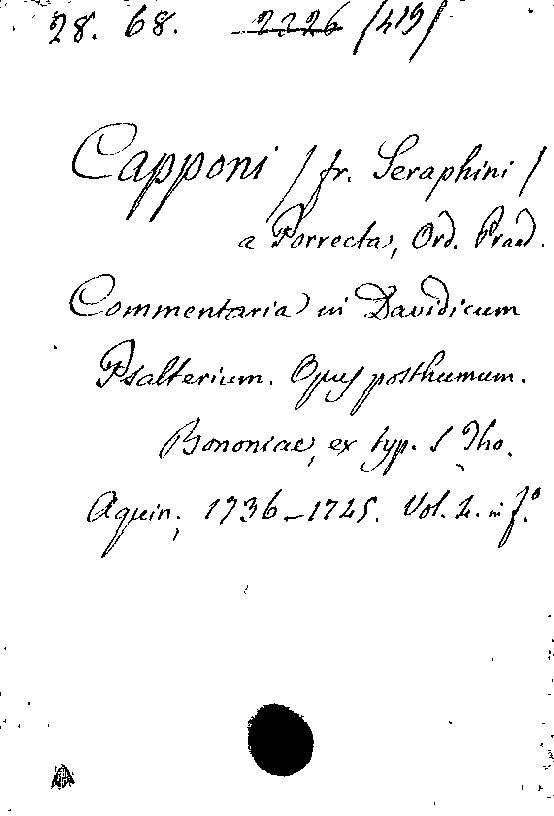 28. 68. 2226 /419/
Capponi /fr. Seraphini/
a Porrecta, Ord. Praed.
Commentaria in Davidicum
Psalterium. Opus posthumum.
Bononiae, ex typ. S Tho.
Aquin; 1736-1745. Vol. 4. in f.º